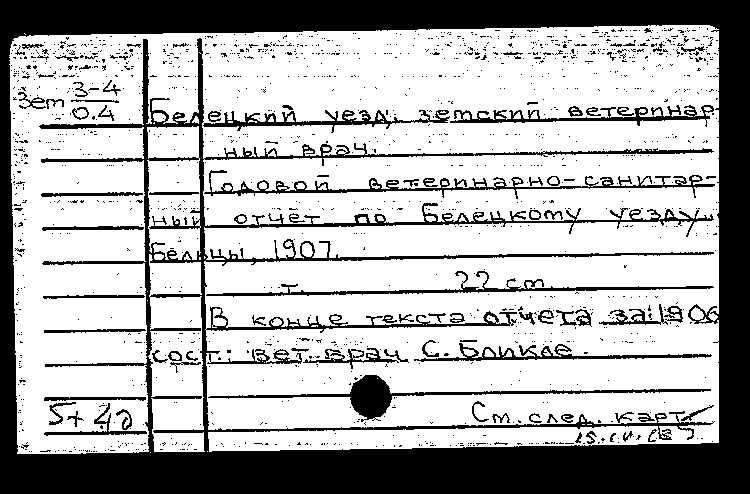 Зем 3-4
0.4
Белецкий уезд. земский ветеринар-
ный врач.
Годовой ветеринарно-санитар-
ный отчёт по Белецкому уезду.
Бельцы, 1907.
т. 22 cm.
В конце текста отчета за 1906
сост.: вет. врач С. Бликле.
5+
См. след. карт.